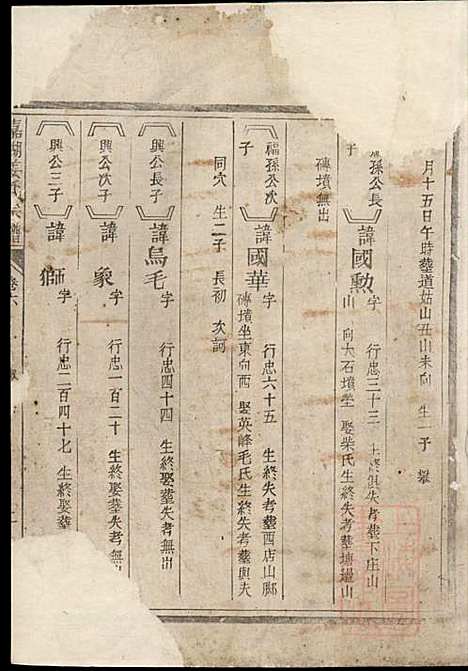 月十五日午時葬道姑山丑山未向 生一子 耀
福孫公長子 諱國勳 字 行忠三十三 生終俱失考葬下庄山
山 向大石墳塋 娶柴氏生終失考葬塘塭山
磚墳無出
福孫公次子 諱國華 字 行忠六十五 生終失考葬西店山腳
磚墳坐東向西 娶英峰毛氏生終失考葬與夫
同穴 生二子 長初 次訶
興公長子 諱烏毛 字 行忠四十四 生終娶葬失考無出
興公次子 諱象 字 行忠一百二十 生終娶葬失考無出
興公三子 諱獅 字 行忠二百四十七 生終娶葬
嘉湖姜氏宗譜 卷六